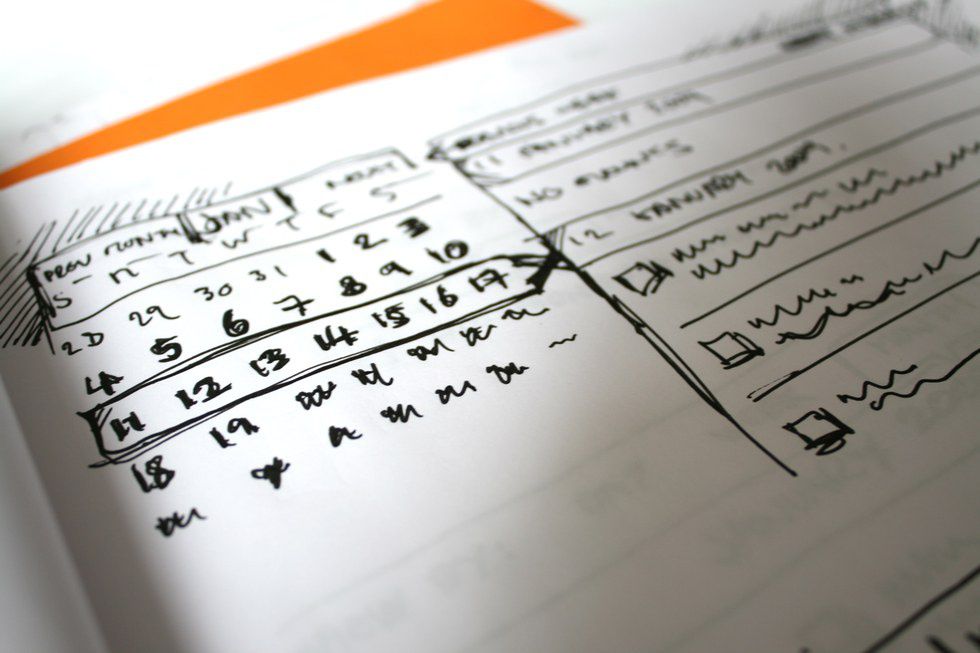 PREV MONTH JAN NEXT
S M T W T F S
28 29 30 31 1 2 3
4 5 6 7 8 9 10
11 12 13 14 15 16 17
18 19
11 JANUARY 2009
NO EVENTS
12 JANUARY 2009.